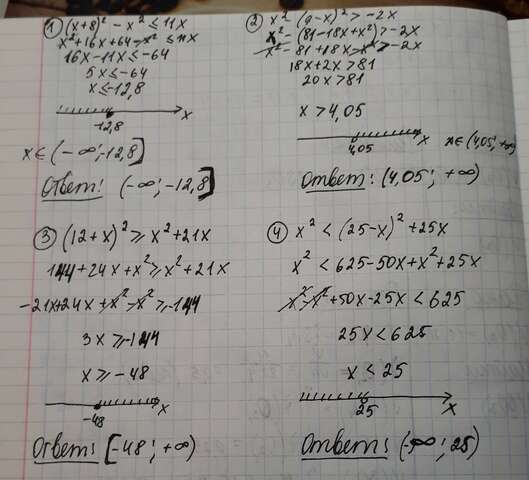 1) (x+8)² - x² ≤ 11x
x² + 16x + 64 - x² ≤ 11x
16x - 11x ≤ -64
5x ≤ -64
x ≤ -12,8
-12,8 x
x ∈ (-∞; -12,8]
Ответ: (-∞; -12,8]
2) x² - (9-x)² > -2x
x² - (81 - 18x + x²) > -2x
x² - 81 + 18x - x² > -2x
18x + 2x > 81
20x > 81
x > 4,05
4,05 x x ∈ (4,05; +∞)
Ответ: (4,05; +∞)
3) (12+x)² ≥ x² + 21x
144 + 24x + x² ≥ x² + 21x
-21x + 24x + x² - x² ≥ -144
3x ≥ -144
x ≥ -48
-48 x
Ответ: [-48; +∞)
4) x² < (25-x)² + 25x
x² < 625 - 50x + x² + 25x
x² - x² + 50x - 25x < 625
25x < 625
x < 25
25 x
Ответ: (-∞; 25)